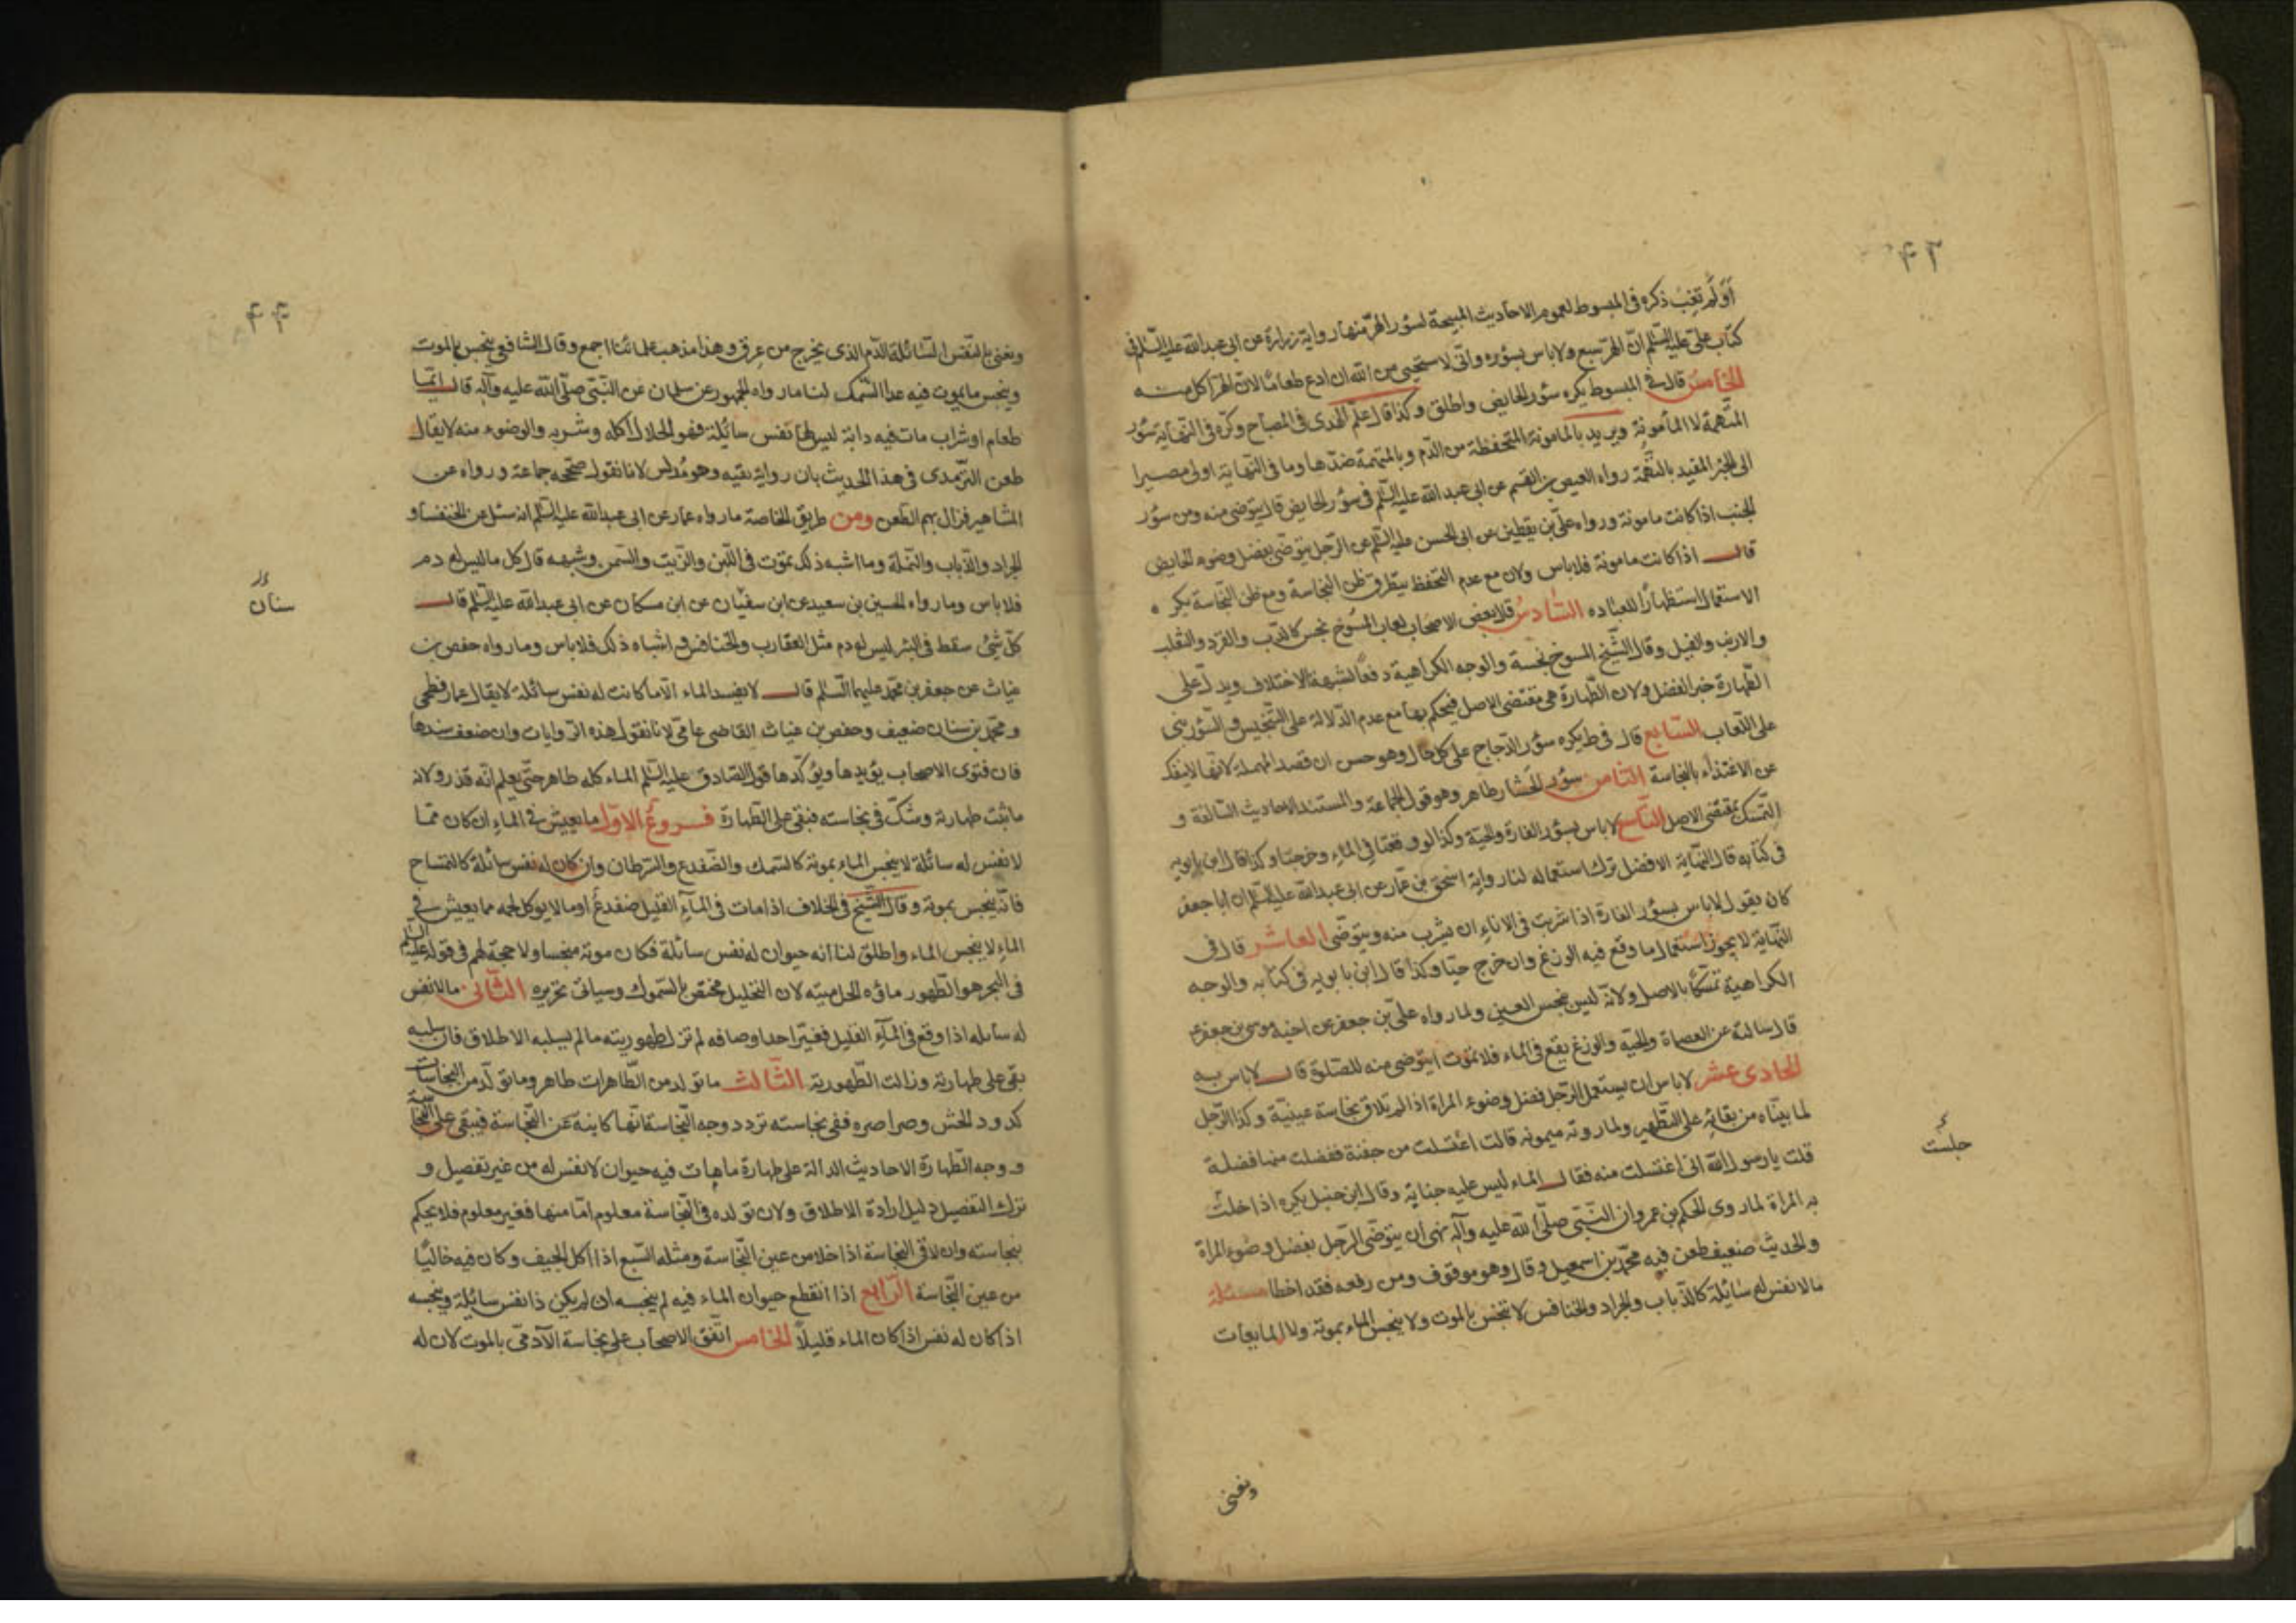 ٤٣
أو لم تغب ذكره في المبسوط لعموم الاحاديث المبيحة لسؤر الهرّ منها رواية زرارة عن ابى عبدالله عليه السّلم في
كتاب علىّ عليه السّلم انّ الهرّ سبع ولا باس بسؤره وانّى لاستحيى من الله ان ادع طعامًا لانّ الهرّ اكل منه
الخامس قال في المبسوط يكره سؤر الحايض واطلق وكذا قال علم الهدى في المصباح وكرّه في النّهاية سؤر
المتّهمة لا المأمونة ويريد بالمامونة المتحفظة من الدّم وبالمتهمة ضدّها وما في النّهاية اولى مصيرا
الى الخبر المقيد بالتهمة رواه العيص بن القسم عن ابى عبدالله عليه السّلم في سؤر الحايض قال يتوضى منه ومن سؤر
الجنب اذا كانت مامونة ورواه علىّ بن يقطين عن ابى الحسن عليه السّلم عن الرّجل يتوضّى بفضل وضوء الحايض
قال اذا كانت مامونة فلا باس ولان مع عدم التحفظ يتطرق ظن النجاسة ومع ظن النّجاسة يكره
الاستعمال استظهارًا للعباده السّادس قال بعض الاصحاب لعاب المسوخ نجس كالدّب والقرد والثعلب
والارنب والفيل وقال الشّيخ المسوخ نجسة والوجه الكراهية دفعًا لشبهة الاختلاف ويدلّ على
الطّهارة خبر الفضل ولان الطّهارة هى مقتضى الاصل فيحكم بها مع عدم الدّلالة على التّنجيس والسّؤر بنى
على اللّعاب السّابع قال في ط يكره سؤر الدّجاج على كلّ حال وهو حسن ان قصد المهملة لانها لا ينفك
عن الاغتذاء بالنجاسة الثّامن سؤر الحشار طاهر وهو قول الجماعة والمستند الاحاديث السّالفة و
التّمسك بمقتضى الاصل التّاسع لا باس بسؤر الفارة والحيّة وكذا لو وقعتا في الماء وخرجتا وكذا قال ابن بابويه
في كتابه قال النّهاية الافضل ترك استعماله لنا رواية اسحق بن عمّار عن ابى عبدالله عليه السّلم ان ابا جعفر
كان يقول لا باس بسؤر الفارة اذا شربت في الاناء ان يشرب منه ويتوضّى العاشر قال في
النّهاية لا يجوز استعمال ما وقع فيه الوزغ وان خرج حيًّا وكذا قال ابن بابويه في كتابه والوجه
الكراهيّة تمسّكًا بالاصل ولانّه ليس بنجس العين ولما رواه علىّ بن جعفر عن اخيه موسى بن جعفر
قال سالته عن العصاة والحيّه والوزغ يقع في الماء فلا تموت ايتوضى منه للصّلوة قال لا باس به
الحادى عشر لا باس ان يستعمل الرّجل فضل وضوء المراة اذا لم يلاق نجاسة عينيّة وكذا الرّجل
لما بيّناه من بقائه على التّطهير ولما روته ميمونه قالت اغتسلت من جفنة ففضلت منها فضلة
جلست
قلت يا رسول الله انى اغتسلت منه فقال الماء ليس عليه جنابة وقال ابن حنبل يكره اذا خلت
به المراة لما روى الحكم بن عمرو ان النّبىّ صلّى الله عليه وآله نهى أن يتوضّى الرّجل بفضل وضوء المراة
والحديث ضعيف طعن فيه محمّد بن اسمعيل وقال وهو موقوف ومن رفعه فقد اخطا مسئلة
مالا نفس له سائلة كالذّباب والجراد والخنافس لا تنجس بالموت ولا ينجس الماء بموتة ولا المايعات
ونعنى
٤٤
ونعنى بالنّفس السّائلة الدّم الذى يخرج من عِرق وهذا مذهب علمائنا اجمع وقال الشافعي ينجس بالموت
وينجس ما يموت فيه عدا السّمك لنا ما رواه الجمهور عن سلمان عن النّبىّ صلّى الله عليه وآله قال ايّما
طعام او شراب مات فيه دابة ليس لها نفس سائلة فهو الحلال اكله وشربه والوضوء منه لا يقال
طعن التّرمذى في هذا الحديث بان رواية بقيه وهو مُدلس لانا نقول صحّحه جماعة ورواه عن
المشاهير فزال بهم الطّعن ومن طريق الخاصة ما رواه عمار عن ابى عبدالله عليه السّلم انه سئل عن الخنفساو
الجراد والذباب والنّملة وما اشبه ذلك تموت في اللّبن والزّيت والسّمن وشبهه قال كل ما ليس له دم
فلا باس وما رواه الحسين بن سعيد عن ابن سفيان عن ابن مسكان عن ابى عبدالله عليه السّلم قال
سنان
كلّ شئ سقط في البئر ليس له دم مثل العقارب والخنافس واشباه ذلك فلا باس وما رواه حفص بن
غياث عن جعفر بن محمّد عليهما السّلم قال لا يفسد الماء الّا ما كانت له نفس سائلة لا يقال عمار فطحى
ومحمّد بن سنان ضعيف وحفص بن غياث القاضى عامّى لانا نقول هذه الرّوايات وان ضعف سندها
فان فتوى الاصحاب يؤيدها ويؤكّدها قول الصّادق عليه السّلم الماء كله طاهر حتّى يعلم انّه قذر ولانه
ماء ثبت طهارته وشكّ في نجاسته فنبقى على الطّهارة فروعٌ الاوّل ما يعيش في الماء ان كان ممّا
لا نفس له سائلة لا ينجس الماء بموته كالسّمك والضّفدع والسّرطان وان كان له نفس سائلة كالتمساح
فانّه ينجس بموته وقال الشّيخ في الخلاف اذا مات في المآء القليل ضفدعٌ او ما لا يوكل لحمه مما يعيش في
الماء لا ينجس الماء واطلق لنا انه حيوان له نفس سائلة فكان موته منجسا ولا حجة لهم في قوله عليه السّلم
في البحر هو الطّهور ماؤه الحل ميتته لان التحليل مختصّ بالسّموك وسياتى تحريره الثّانى مالا نفس
له سائله اذا وقع في المآء القليل فغيّر احد اوصافه لم تزل طهوريته ما لم يسلبه الاطلاق فان سلبه
بقى على طهارته وزالت الطّهورية الثّالث ما تولد من الطّاهرات طاهر وما تولّد من النجاسات
كدود الحش وصراصره ففى نجاسته تردد وجه النّجاسة انّها كاينة عن النّجاسة فيبقى على النّجاسة
ووجه الطّهارة الاحاديث الدالة على طهارة ما مات فيه حيوان لا نفس له من غير تفصيل و
ترك التفصيل دليل ارادة الاطلاق ولان تولده في النّجاسة معلوم امّا منها فغير معلوم فلا يحكم
بنجاسته وان لاقى النجاسة اذا خلا من عين النّجاسة ومثله السّبع اذا اكل الجيف وكان فيه خاليًا
من عين النّجاسة الرّابع اذا انقطع حيوان الماء فيه لم ينجسه ان لم يكن ذا نفس سائلة وينجسه
اذا كان له نفس اذا كان الماء قليلاً الخامس اتّفق الاصحاب على نجاسة الآدمىّ بالموت لان له